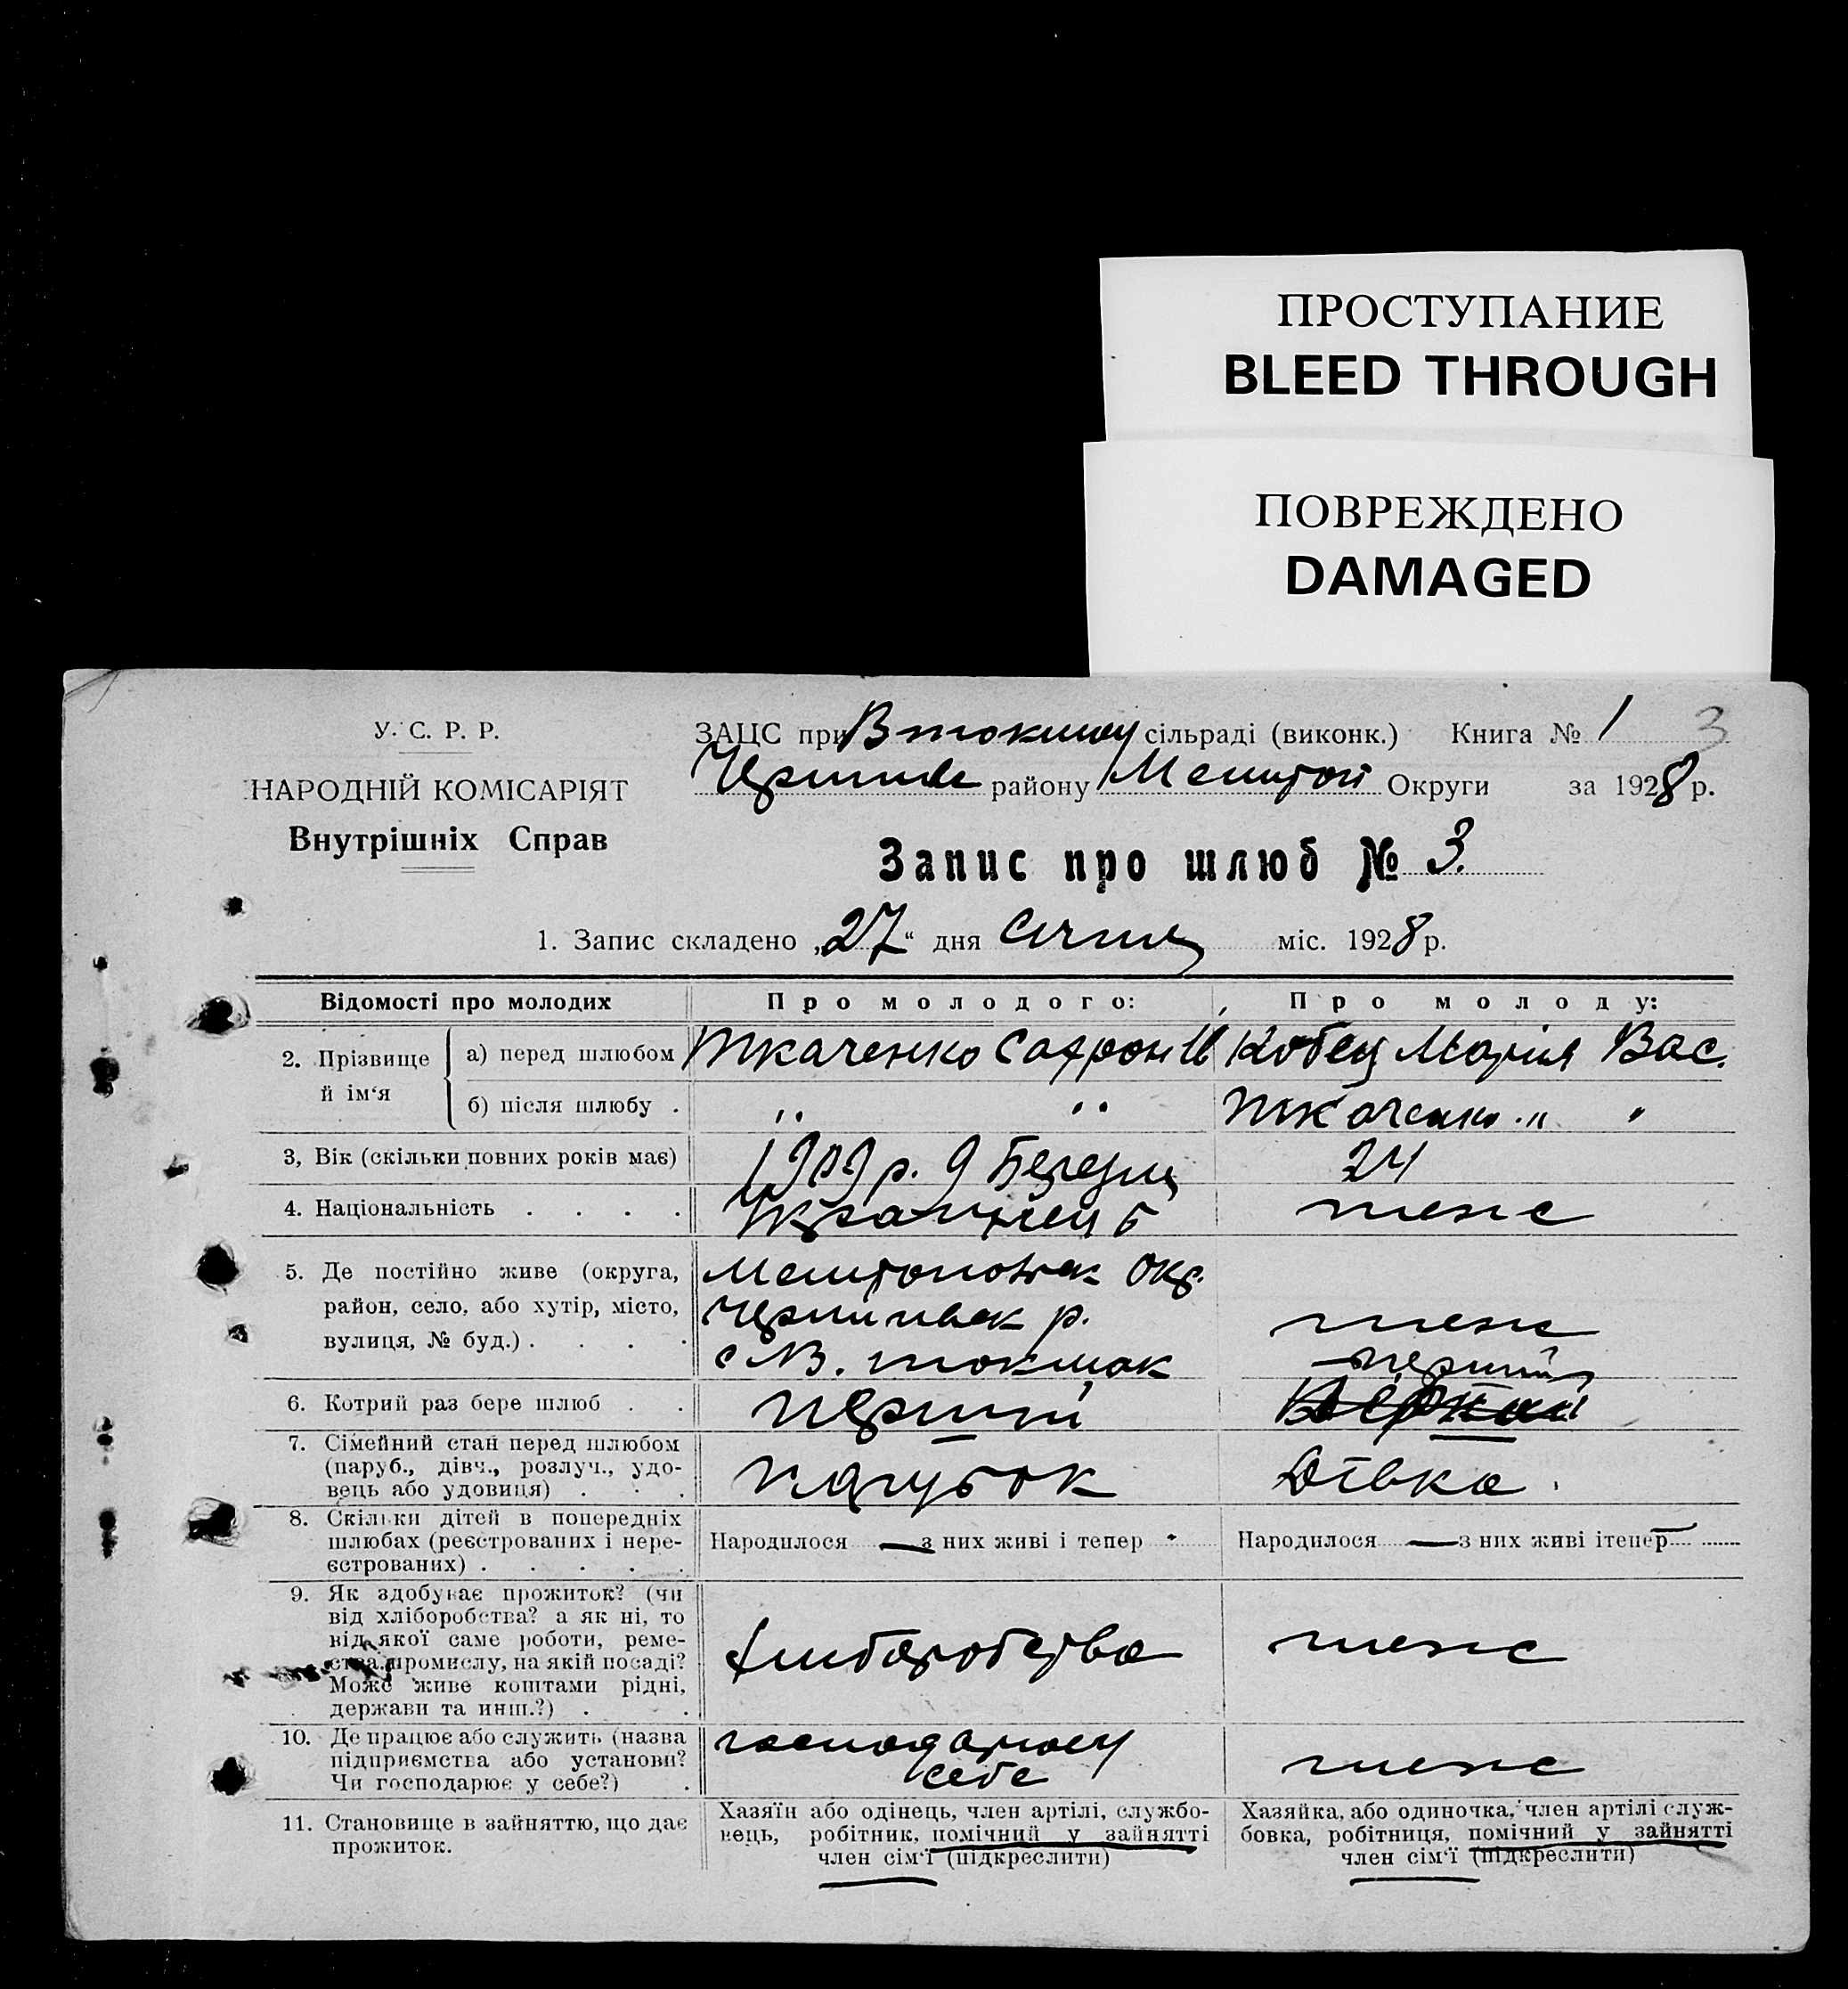 ПРОСТУПАНИЕ
BLEED THROUGH
ПОВРЕЖДЕНО
DAMAGED
У. С. Р. Р.
НАРОДНІЙ КОМІСАРІЯТ
Внутрішніх Справ
ЗАЦС при В токмац сільраді (виконк.) Книга № 1 3
району Округи за 1928 р.
Запис про шлюб № 3.
1. Запис складено „27“ дня Січня міс. 1928 р.
Відомості про молодих Про молодого: Про молоду:
2. Прізвище й ім‘я
а) перед шлюбом Ткаченко Сафрон И Кобец Марія Вас.
б) після шлюбу . " " Ткаченко " "
3, Вік (скільки повних років має) 1909 р. 9 Березня 24
4. Національність . . . . Українець теж
5. Де постійно живе (округа, район, село, або хутір, місто, вулиця, № буд.) . . . .
Мелитопольск Окр.
р.
с В. токмак
теж
6. Котрий раз бере шлюб . . перший перший
7. Сімейний стан перед шлюбом (паруб., дівч., розлуч., удовець або удовиця) . . . парубок Дівка .
8. Скільки дітей в попередніх шлюбах (реєстрованих і нереєстрованих) . . . . .
Народилося — з них живі і тепер - Народилося — з них живі ітепер —
9. Як здобуває прожиток? (чи від хліборобства? а як ні, то від якої саме роботи, ремества, промислу, на якій посаді? Може живе коштами рідні, держави та инш.?) . .
хліборобства теж
10. Де працює або служить (назва підприємства або установи? Чи господарює у себе?) .
господарює у
себе
теж
11. Становище в зайняттю, що дає прожиток.
Хазяїн або одінець, член артілі, службовець, робітник, помічний у зайнятті член сім‘ї (підкреслити)
Хазяйка, або одиночка, член артілі службовка, робітниця, помічний у зайнятті член сім‘ї (підкреслити)